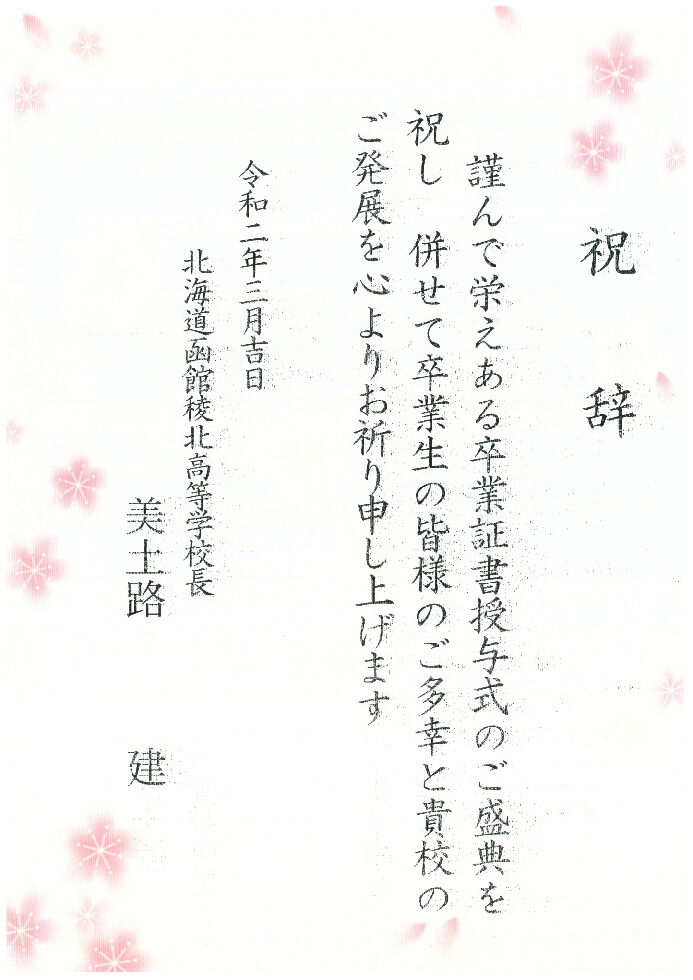 祝辞
謹んで栄えある卒業証書授与式のご盛典を
祝し　併せて卒業生の皆様のご多幸と貴校の
ご発展を心よりお祈り申し上げます
令和二年三月吉日
北海道函館稜北高等学校長
美土路　建